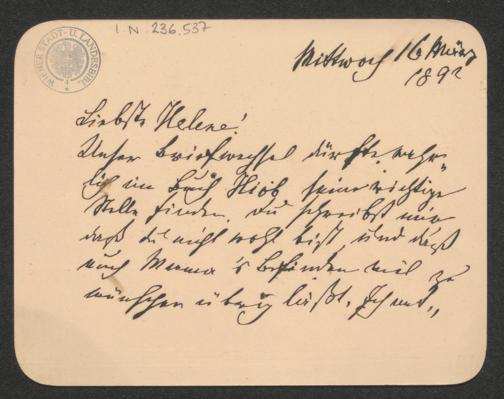 I N 236.537
WIENER STADT- U. LANDESBIBL.
Mittwoch 16 März
1892
Liebste Helene!
Unser Briefwechsel dürfte wahr-
lich im Buch Hiob seine richtige
Stelle finden. Du schreibst mir
daß du nicht wohl bist, und daß
auch Mama's Befinden viel zu
wünschen übrig läßt. Ich